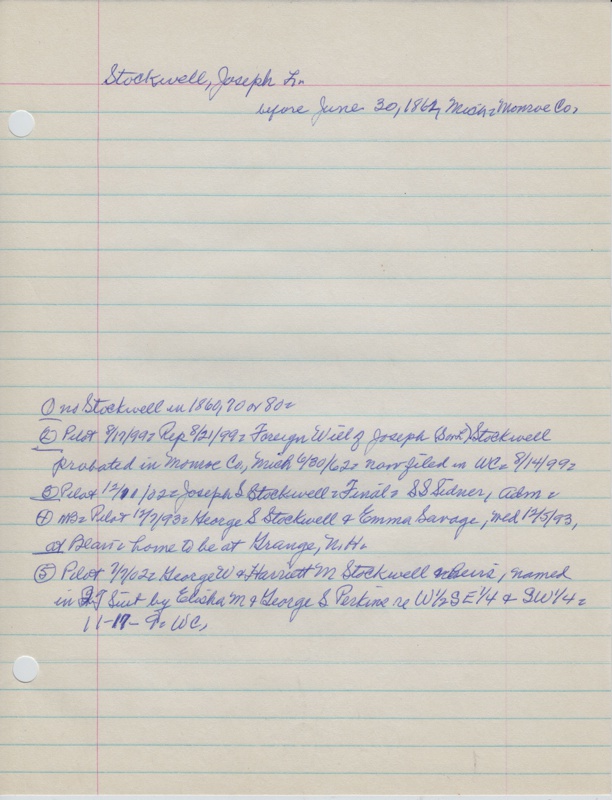 Stockwell, Joseph
before June 30, 1862, Mich= Monroe Co,
① no Stockwell in 1860, 70 or 80=
② Pilot 8/17/99= Rep 8/21/99= Foreign Will of Joseph Stockwell
probated in Monroe Co, Mich 6/30/62= now filed in WC= 8/14/99=
③ Pilot /02= Joseph S Stockwell= Final= S S Tidner, adm=
④ MB= Pilot 12/7/93= George S Stockwell & Emma Savage, Wed 12/5/93,
at home to be at Grange, N.H=
⑤ Pilot 7/7/02= George W & Harriett M Stockwell & heirs, named
in QT Suit by Elisha M & George S Perkins re W½SE¼ & SW¼=
11-17-9= WC,